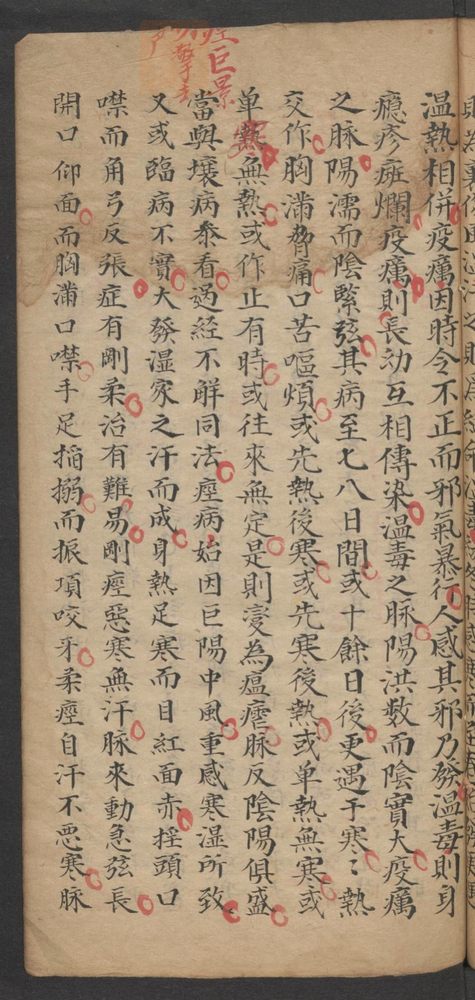 溫熱相併疫癘因時令不正而邪氣暴行人感其邪乃發溫毒則身
癮疹斑爛疫癘則長幼互相傳染溫毒之脉陽洪数而陰實大疫癘
之脉陽濡而陰緊弦其病至七八日間或十餘日後更遇于寒〻熱
交作胸滿脅痛口苦嘔煩或先熱後寒或先寒後熱或单熱無寒或
单無熱或作止有時或往來無定是則變為瘟瘧脉反陰陽俱盛
當與壞病叅看過經不觧同法痙病始因巨陽中風重感寒湿所致
又或臨病不實大發湿家之汗而成身熱足寒而目紅面赤揺頭口
噤而角弓反張症有剛柔治有難易剛痙惡寒無汗脉來動急弦長
開口仰面而胸滿口噤手足搐搦而振項咬牙柔痙自汗不悪寒脉
巨景